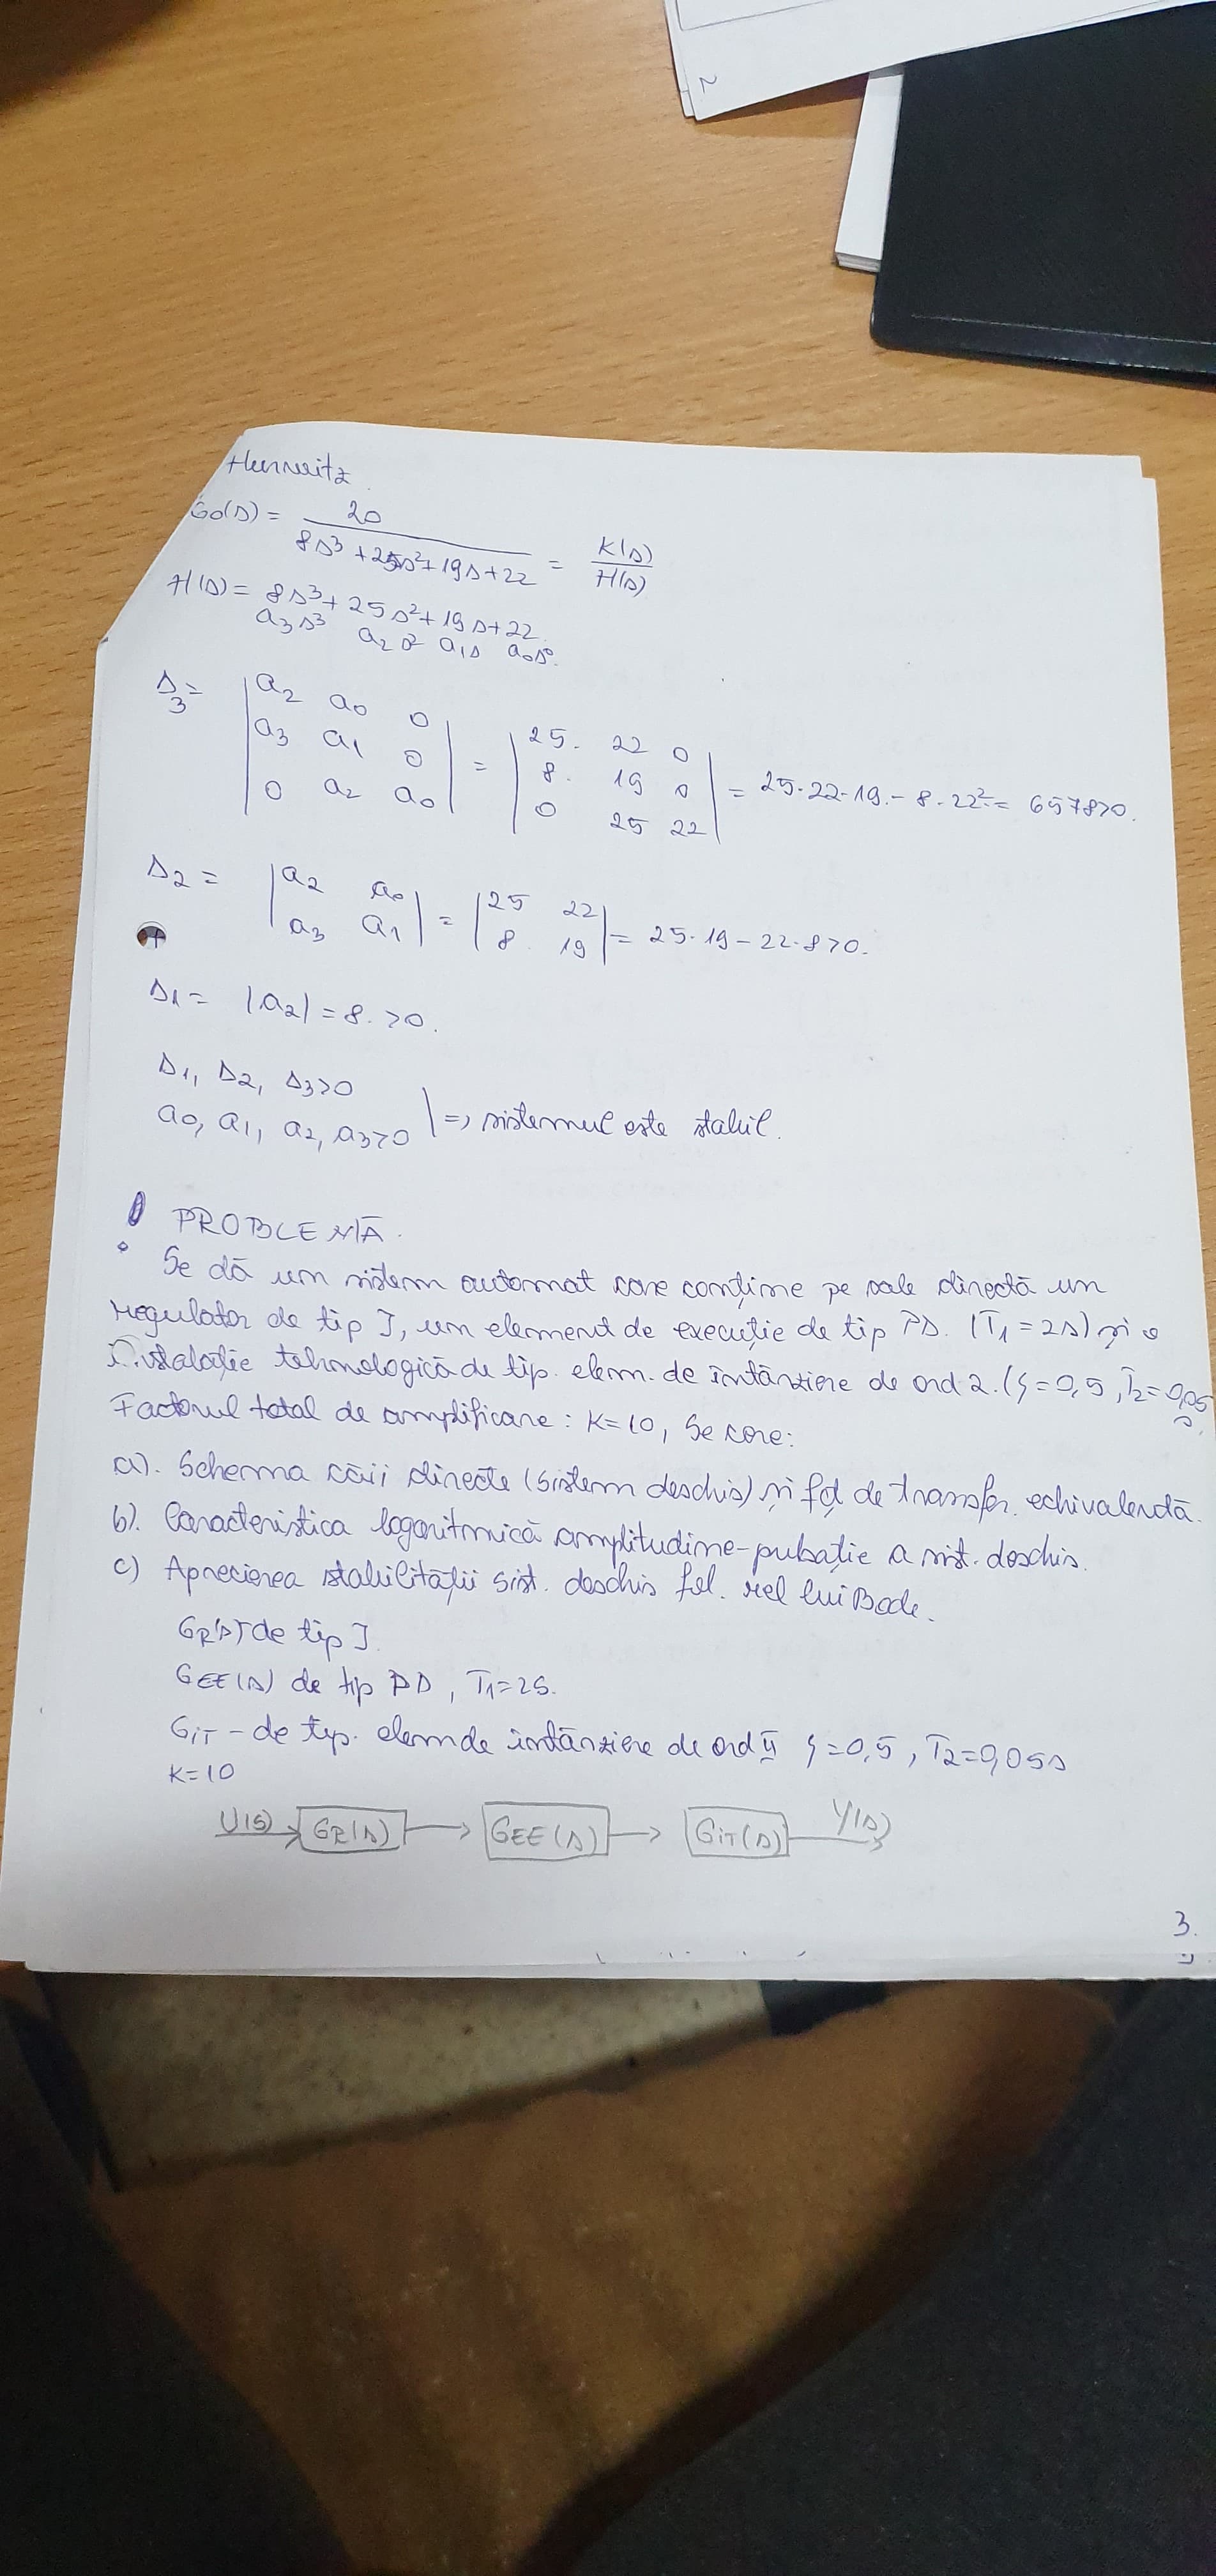 Hurwitz
G0(s) = 20 / (8s³ + 25s² + 19s + 22) = K(s) / H(s)
H(s) = 8s³ + 25s² + 19s + 22
a3s³ a2s² a1s a0s⁰
Δ3 = | a2 a0 0 | = | 25 22 0 |
| a3 a1 0 | | 8 19 0 | = 25·22·19 - 8·22² = 6578 > 0.
| 0 a2 a0 | | 0 25 22 |
Δ2 = | a2 a0 | = | 25 22 |
| a3 a1 | | 8 19 | = 25·19 - 22·8 > 0.
Δ1 = |a2| = 8. > 0.
Δ1, Δ2, Δ3 > 0
a0, a1, a2, a3 > 0 | => sistemul este stabil.
! PROBLEMĂ.
Se dă un sistem automat care conține pe cale directă un
regulator de tip I, un element de execuție de tip PD. (T1 = 2s) și o
instalație tehnologică de tip. elem. de întârziere de ord 2. (ζ = 0,5, T2 = 0,05
s.
Factorul total de amplificare: K = 10, Se cere:
a). Schema căii directe (sistem deschis) și fct de transfer. echivalentă.
b). Caracteristica logaritmică amplitudine-pulsație a sist. deschis.
c) Aprecierea stabilității sist. deschis fol. rel lui Bode.
GR(s) de tip I.
GEE(s) de tip PD, T1 = 2s.
GIT - de tip. elem de întârziere de ord II ζ = 0,5, T2 = 0,05s
K = 10
U(s) GR(s) GEE(s) GIT(s) Y(s)
3.